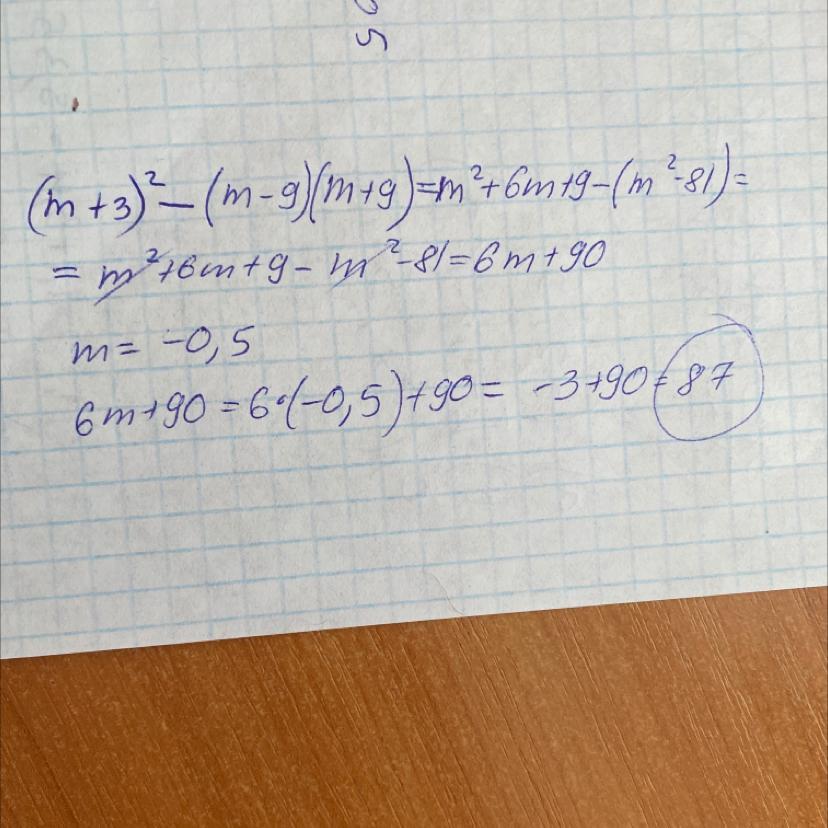 (m+3)²-(m-9)(m+9)=m²+6m+9-(m²-81)=
=m²+6m+9-m²-81=6m+90
m=-0,5
6m+90=6·(-0,5)+90=-3+90=87